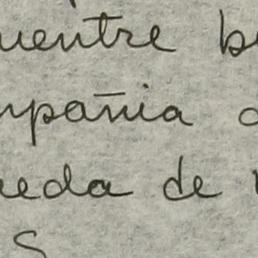 uentre b
mpañia
ueda de
S